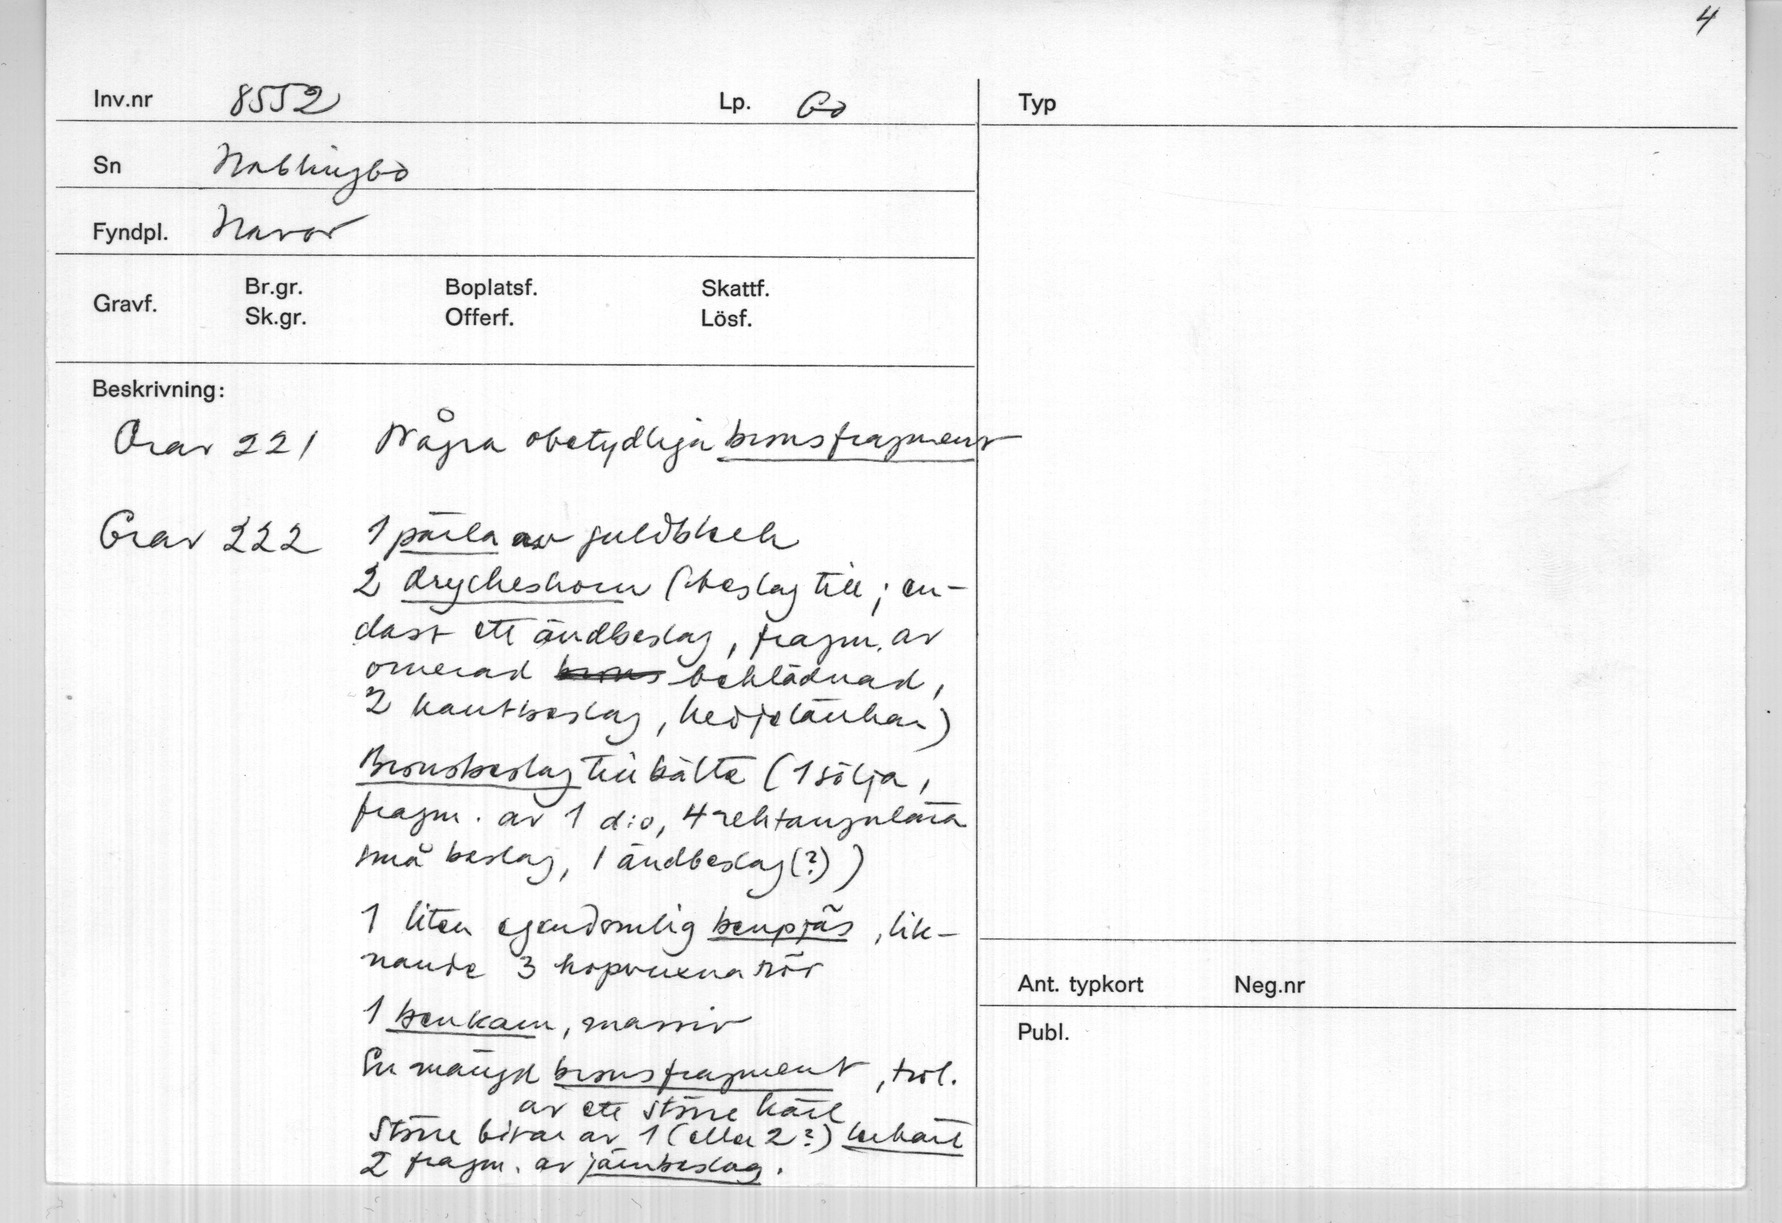 4
Inv.nr 8552 Lp. Go Typ
Sn Hablingbo
Fyndpl. Havor
Gravf. Br.gr. Boplatsf. Skattf.
Sk.gr. Offerf. Lösf.
Beskrivning:
Grav 221 Några obetydliga bronsfragment
Grav 222 1 pärla av guldbleck
2 dryckeshorn (beslag till; en-
dast ett ändbeslag, fragm. av
ornerad brons beklädnad,
2 kantbeslag, kedjelänkar)
Bronsbeslag till bälte (1 sölja,
fragm. av 1 d:o, 4 rektangulära
små beslag, 1 ändbeslag(?))
1 liten egendomlig benpjäs, lik-
nande 3 hopvuxna rör
1 benkam, massiv
En mängd bronsfragment, trol.
av ett större kärl
Större bitar av 1 (eller 2?) lerkärl
2 fragm. av järnbeslag.
Ant. typkort Neg.nr
Publ.